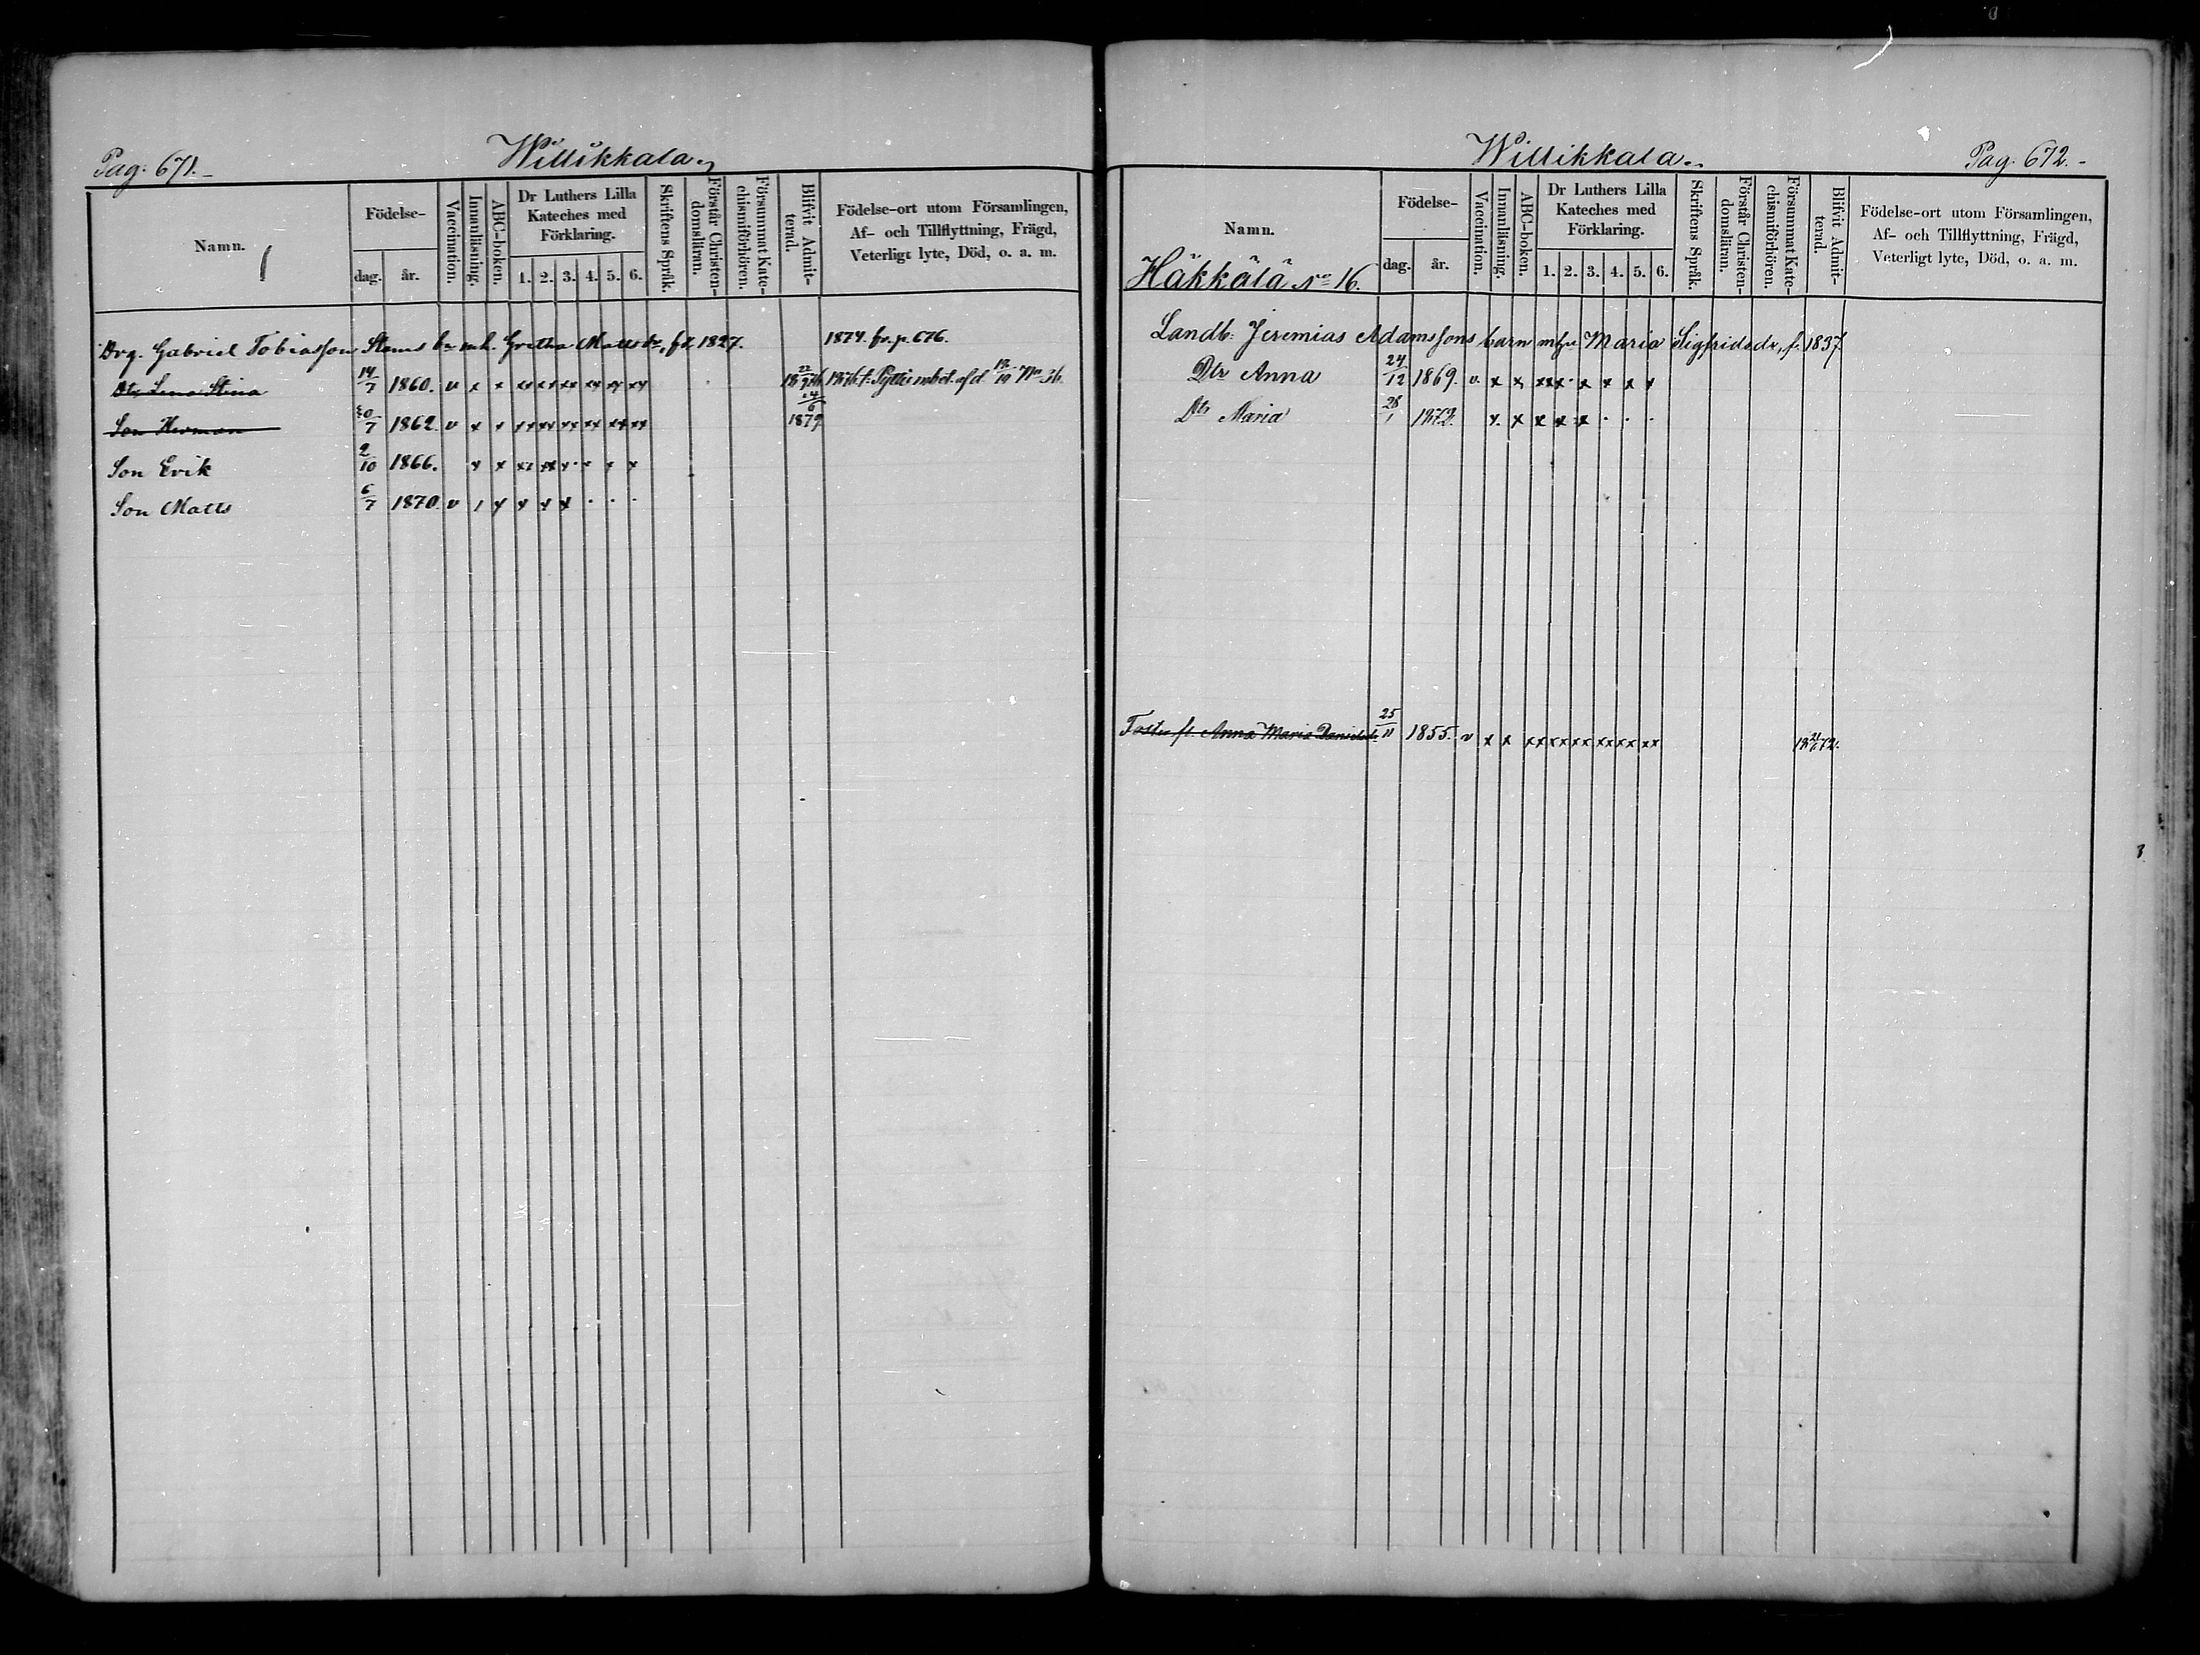 Pag: 671.
Willikkala.
Namn.
Födelse-
dag. år.
Vaccination.
Innanläsning.
ABC-boken.
Dr Luthers Lilla
Kateches med
Förklaring.
1. 2. 3. 4. 5. 6.
Skriftens Språk.
Förstår Christen-
domsläran.
Försummat Kate-
chismiförhören.
Blifvit Admit-
terad.
Födelse-ort utom Församlingen,
Af- och Tillflyttning, Frägd,
Veterligt lyte, Död, o. a. m.
Drg. Gabriel Tobiasson Stams bn m.h. Gretha Mattsdr, fd 1827. 1874. fr. p. 676.
Dtr Lena Stina 14/7 1860. v x x xx xx xx xx xx xx
Son Herman 30/7 1862. v x x xx xx xx xx xx xx 14/6 1879
Son Erik 2/10 1866. x x
Son Matts 6/7 1870. v
Willikkala.
Pag. 672.
Namn.
Häkkälä No 16.
Födelse-
dag. år.
Vaccination.
Innanläsning.
ABC-boken.
Dr Luthers Lilla
Kateches med
Förklaring.
1. 2. 3. 4. 5. 6.
Skriftens Språk.
Förstår Christen-
domsläran.
Försummat Kate-
chismiförhören.
Blifvit Admit-
terad.
Födelse-ort utom Församlingen,
Af- och Tillflyttning, Frägd,
Veterligt lyte, Död, o. a. m.
Landb. Jeremias Adamssons barn m hu Maria Sigfridsdr, f. 1837.
Dtr Anna 24/12 1869. v. x x
Dtr Maria 28/1 1872. x. x x x x
Foster fl. Anna Maria Danielsdr 25/11 1855. v x x xx xx xx xx xx xx